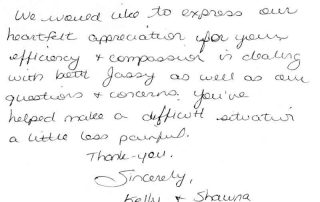 We would like to express our
heartfelt appreciation for your
efficiency & compassion in dealing
with both Jassy as well as our
questions & concerns. You've
helped make a difficult situation
a little less painful.
Thank-you.
Sincerely,
Kelly & Shawna